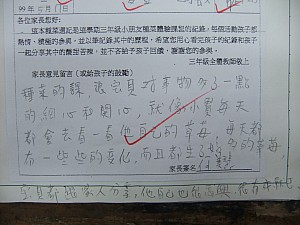 99年6月11日
各位家長您好:
這本種菜週記是這學期三年級小朋友種菜體驗課程的紀錄,每個活動孩子都
熱情、積極的參與,並以筆記錄其中的歷程。希望您用心看完孩子的紀錄和孩子
一起分享其中的酸甜苦辣,並不吝給予孩子回饋。謝謝您的參與。
三年級全體教師敬上
家長意見留言(或給孩子的鼓勵)
種菜的課讓宗夏對事物多了一點
的細心和關心,就像小寶每天
都會去看一看他自己的草莓,每天都
有一些些的變化,而且都生了 的草莓,
家長簽名
宗夏都跟家人分享,他自己也很高興